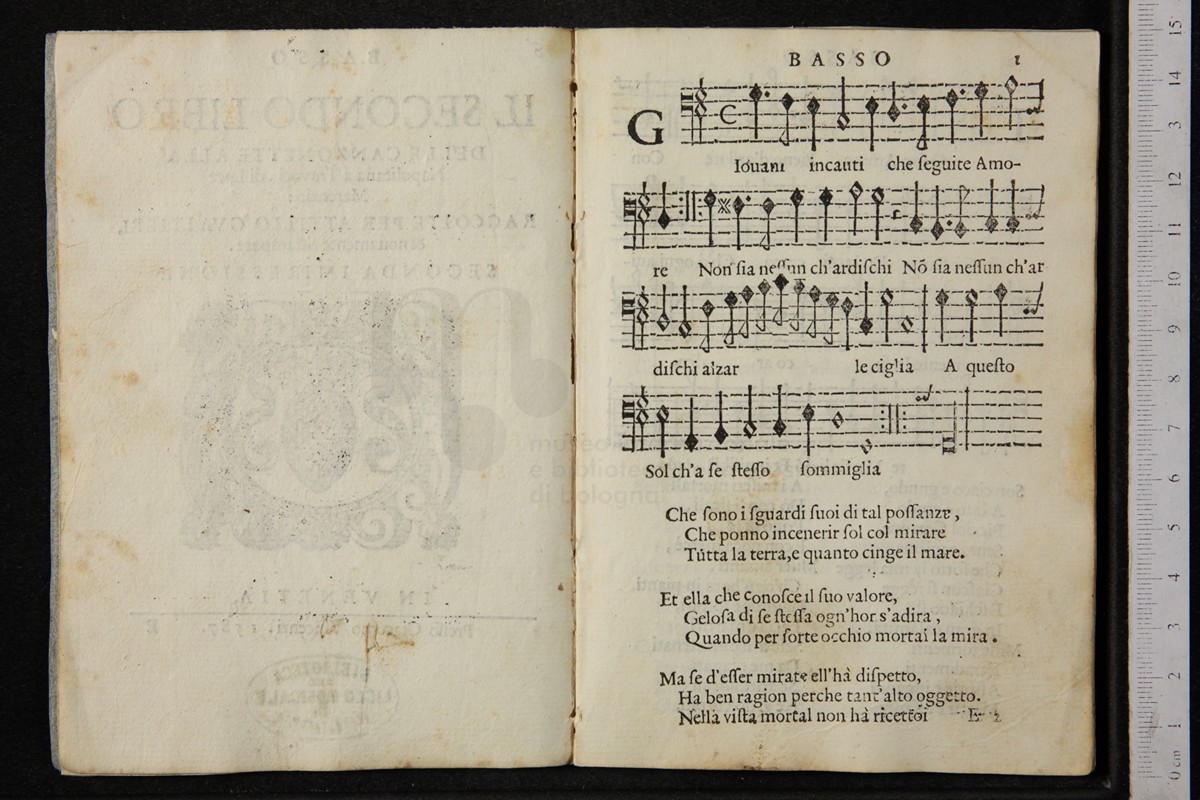 BASSO 1
G
Iouani incauti che ſeguite Amo-
re Non ſia neſſun ch'ardiſchi Nõ ſia neſſun ch'ar
diſchi alzar le ciglia A queſto
Sol ch'a ſe ſteſſo ſommiglia
Che ſono i ſguardi ſuoi di tal poſſanze,
Che ponno incenerir ſol col mirare
Tutta la terra,e quanto cinge il mare.
Et ella che conoſce il ſuo valore,
Geloſa di ſe ſteſſa ogn'hor s'adira,
Quando per ſorte occhio mortal la mira.
Ma ſe d'eſſer mirate ell'hà diſpetto,
Ha ben ragion perche tant'alto oggetto.
Nella viſta mortal non hà ricettoi E 2
museo
e biblioteca
di bologna
15
14
13
12
11
10
9
8
7
6
5
4
3
2
1
0 cm